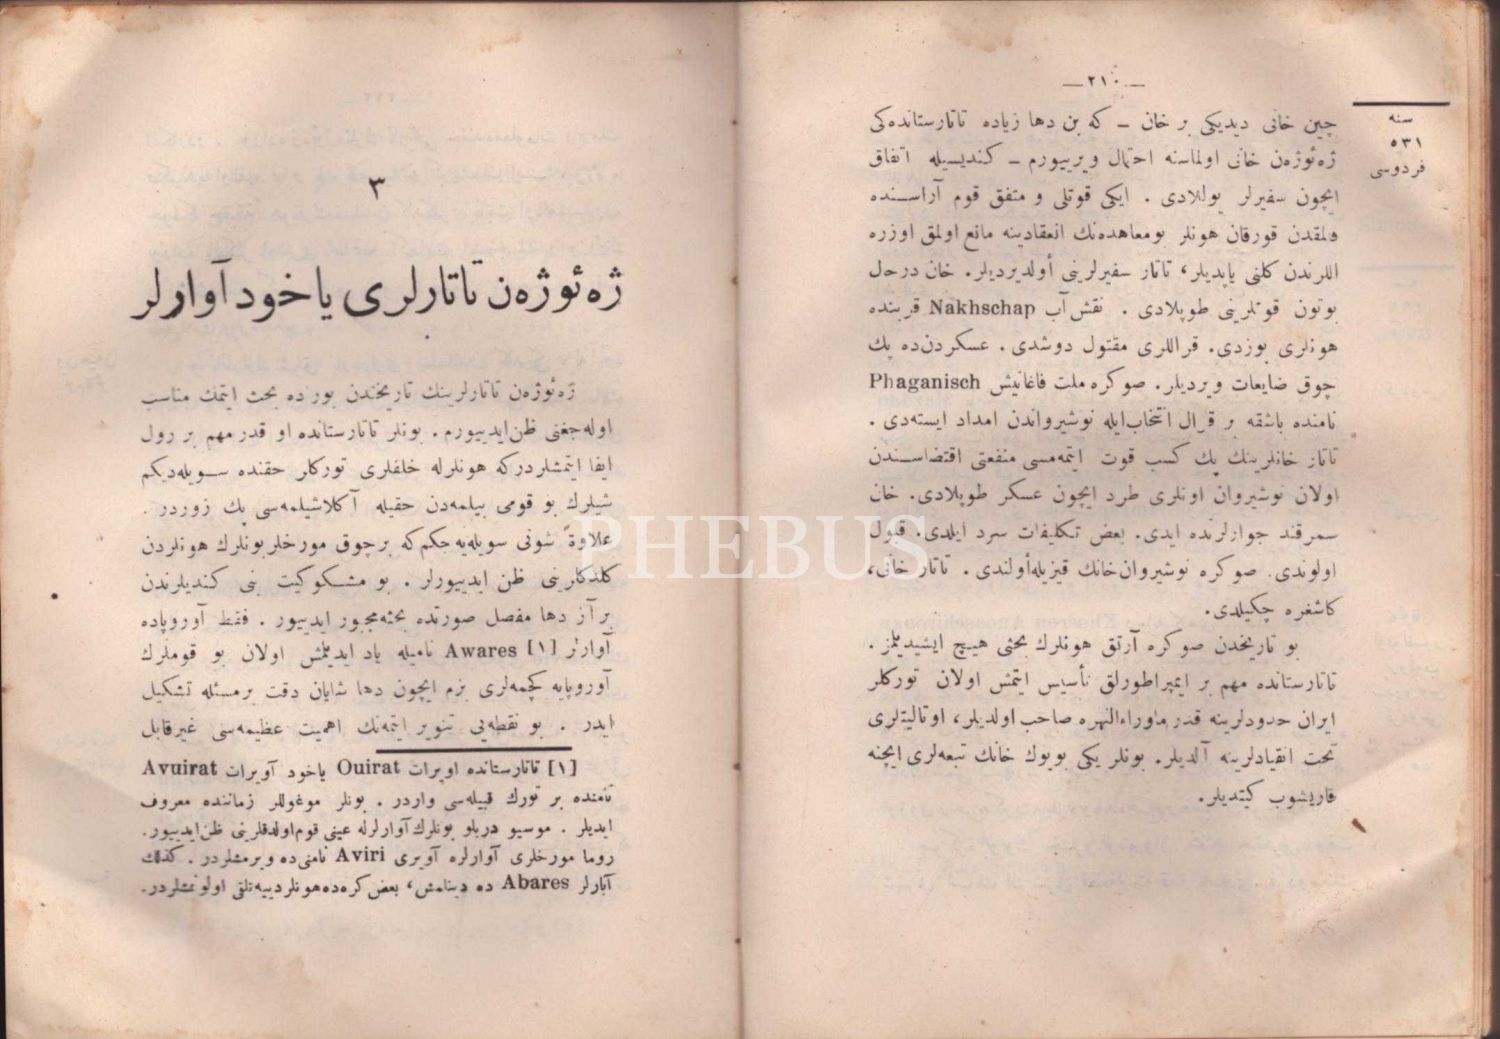 —٢١٠—
سنه
٥٣١
فردوسی
چین خانی دیدیكی بر خان — كه بن دها زیاده تاتارستانده‌كی
ژه‌ئوژه‌ن خانی اولماسنه احتمال ویرییورم — كندیسیله اتفاق
ایچون سفیرلر یوللادی . ایكی قوتلی و متفق قوم آراسنده
قالمقدن قورقان هونلر بومعاهده‌نك انعقادینه مانع اولمق اوزره
اللرندن كلنی یاپدیلر، تاتار سفیرلرینی أولدیردیلر. خان درحل
بوتون قوتلرینی طوپلادی . نقش آب Nakhschap قربنده
هونلری بوزدی. قراللری مقتول دوشدی . عسكردن‌ده پك
چوق ضایعات ویردیلر. صوكره ملت فاغانیش Phaganisch
نامنده باشقه بر قرال انتخاب‌ایله نوشیرواندن امداد ایسته‌دی .
تاتار خانلرینك پك كسب قوت ایتمه‌مسی منفعتی اقتضاسندن
اولان نوشیروان اونلری طرد ایچون عسكر طوپلادی. خان
سمرقند جوارلرنده ایدی. بعض تكلیفات سرد ایلدی. قبول
اولوندی. صوكره نوشیروان‌خانك قیزیله‌أولندی . تاتار خانی،
كاشغره چكیلدی.
بو تاریخدن صوكره آرتق هونلرك بحثی هیچ ایشیدیلمز .
تاتارستانده مهم بر ایمپراطورلق تأسیس ایتمش اولان توركلر
ایران حدودلرینه قدر ماوراءالنهره صاحب اولدیلر، اوتالیتلری
تحت انقیادلرینه آلدیلر. بونلر یكی بویوك خانك تبعه‌لری ایچنه
قاریشوب كیتدیلر.
٣
ژه‌ئوژه‌ن تاتارلری یاخود آوارلر
ژه‌ئوژه‌ن تاتارلرینك تاریخندن بوراده بحث ایتمك مناسب
اوله‌جغنی ظن‌ایدییورم . بونلر تاتارستانده او قدر مهم بر رول
ایفا ایتمشلردركه هونلرله خلفلری توركلر حقنده سویله‌دیكم
شیلرك بو قومی بیلمه‌دن حقیله آكلاشیلمه‌سی پك زوردر .
علاوةً شونی سویله‌یه‌جكم‌كه برچوق مورخلربونلرك هونلردن
كلدكلرینی ظن ایدییورلر . بو مشكوكیت بنی كندیلرندن
برآز دها مفصل صورتده بحثه‌مجبور ایدییور . فقط آوروپاده
آوارلر [١] Awares نامیله یاد ایدیلمش اولان بو قوملرك
آوروپایه كچمه‌لری بزم ایچون دها شایان دقت برمسئله تشكیل
ایدر . بو نقطه‌یی تنویر ایتمه‌نك اهمیت عظیمه‌سی غیرقابل
[١] تاتارستانده اویرات Ouirat یاخود آویرات Avuirat
نامنده بر تورك قبیله‌سی واردر . بونلر موغوللر زماننده معروف
ایدیلر . موسیو دربلو بونلرك آوارلرله عینی قوم‌اولدقلرینی ظن‌ایدییور.
روما مورخلری آوارلره آویری Aviri نامنی‌ده ویرمشلردر . كذلك
آبارلر Abares ده دینلمش، بعض كره‌ده‌هونلردییه‌تلقی اولونمشلردر.
PHEBUS